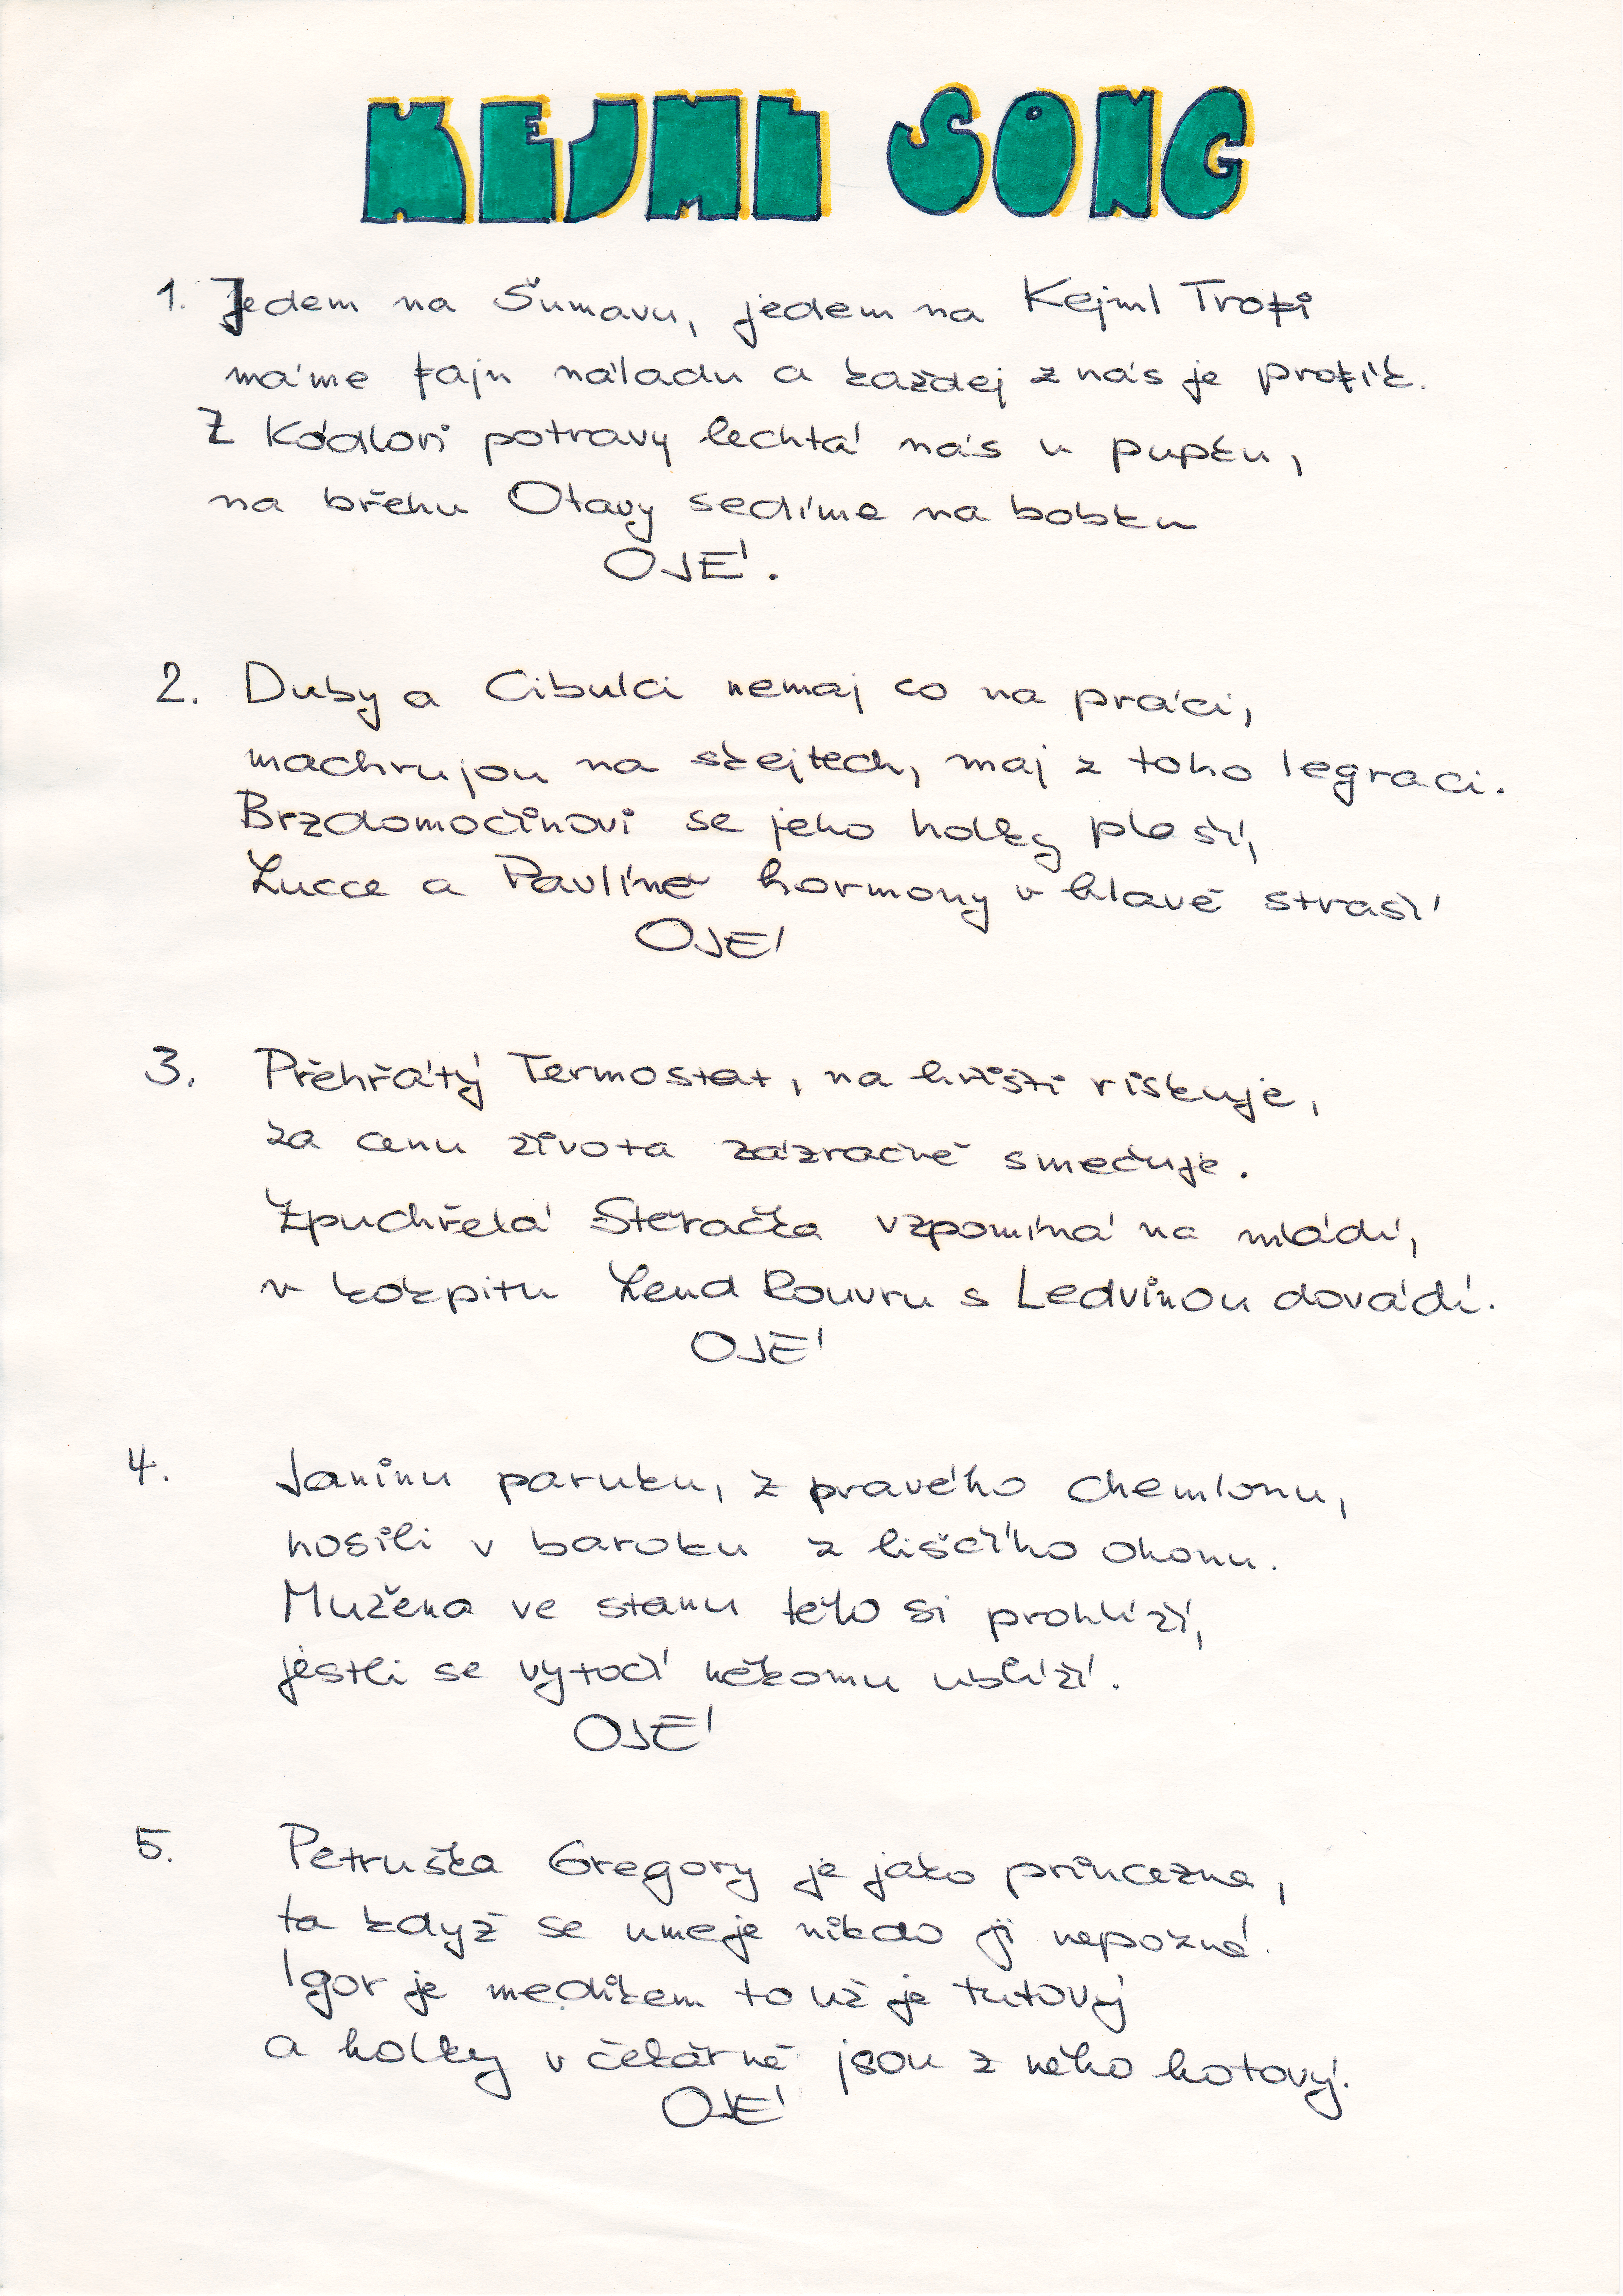 KEJML SONG
1. Jedem na Šumavu, jedem na Kejml Trofi
máme fajn náladu a každej z nás je profík.
Z Kódlovi potravy lechtá nás u pupku,
na břehu Otavy sedíme na bobku
OJÉ.
2. Duby a Cibulci nemaj co na práci,
machrujou na skejtech, maj z toho legraci.
Brzdomočinovi se jeho holky plaší,
Lucce a Pavlíně hormony v hlavě straší
OJÉ
3. Přehřátý Termostat, na hřišti riskuje,
za cenu života zázračně smečuje.
Zpuchřelá Steračka vzpomíná na mládí,
v kokpitu Lend Rouvru s Ledvinou dovádí.
OJÉ
4. Janinu paruku, z pravého chemlonu,
nosili v baroku z liščího ohonu.
Mužena ve stanu tělo si prohlíží,
jestli se vytočí někomu ublíží.
OJÉ
5. Petruška Gregory je jako princezna,
ta když se umeje nikdo ji nepozná.
Igor je medikem to už je tutový
a holky v čekárně jsou z něho hotový.
OJÉ